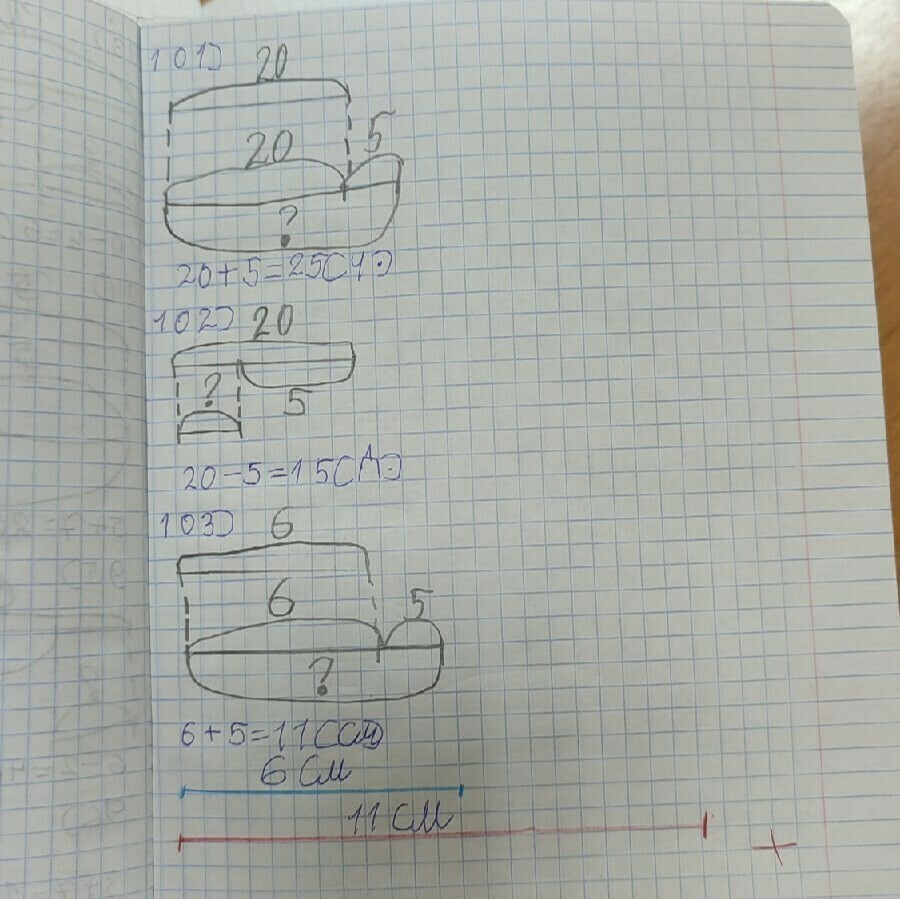 101)
20
20 5
?
20+5=25(ч)
102) 20
? 5
20-5=15(д)
103) 6
6 5
?
6+5=11(см)
6 см
11 см
+